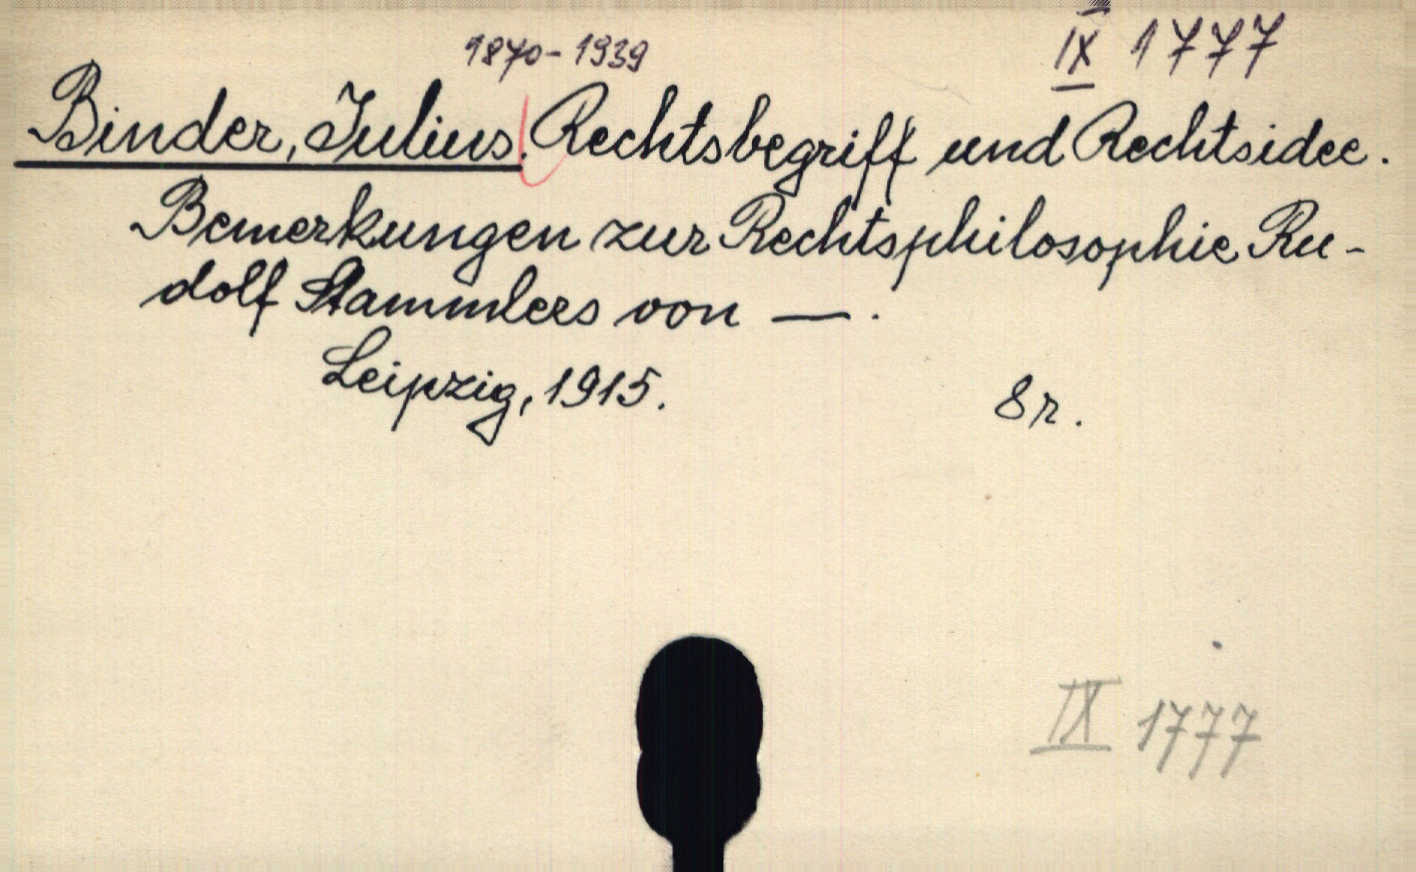 1870-1939
IX 1777
Binder, Julius. Rechtsbegriff und Rechtsidee.
Bemerkungen zur Rechtsphilosophie Ru-
dolf Stammlers von —.
Leipzig, 1915.
8r.
IX 1777